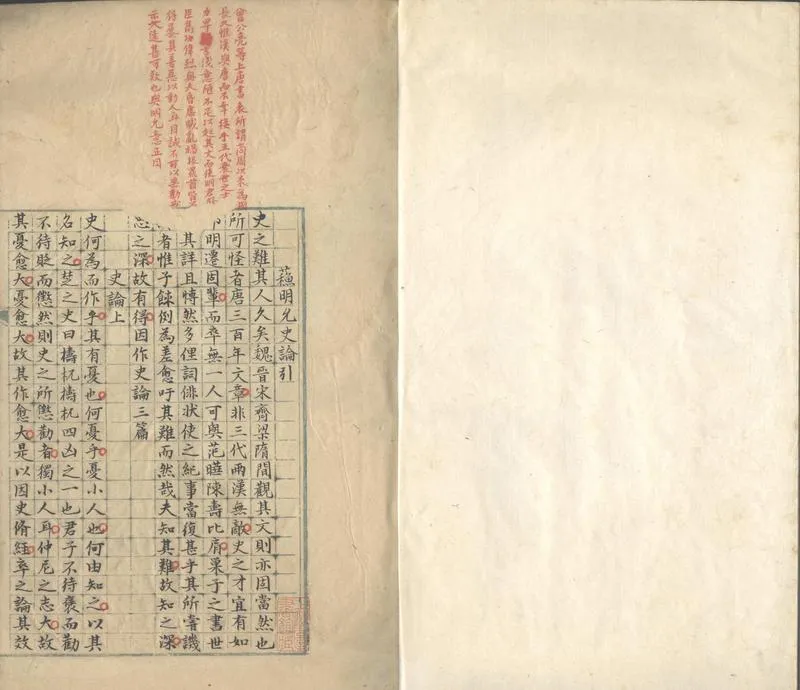 曾公亮等上唐書表所謂商周以來為國
長久惟漢與唐而不幸接乎五代衰世之士
力卑言淺意陋不足以起其文而使明君賢
臣雋功偉烈與夫昏虐賊亂禍根罪首皆不
得暴其善惡以動人耳目誠不可以垂勸戒
示久遠甚可歎也與明允意正同
蘇明允史論引
史之難其人久矣魏晉宋齊梁隋間觀其文則亦固當然也
所可怪者唐三百年文章非三代兩漢無敵史之才宜有如
明遷固輩而卒無一人可與范曄陳壽比肩巢子之書世
其詳且博然多俚詞俳狀使之紀事當復甚乎其所甞譏
者惟子餗例為差愈吁其難而然哉夫知其難故知之深
思之深故有得因作史論三篇
史論上
史何為而作乎其有憂也何憂乎憂小人也何由知之以其
名知之楚之史曰檮杌檮杌四凶之一也君子不待褒而勸
不待貶而懲然則史之所懲勸者獨小人耳仲尼之志大故
其憂愈大憂愈大故其作愈大是以因史脩經卒之論其效